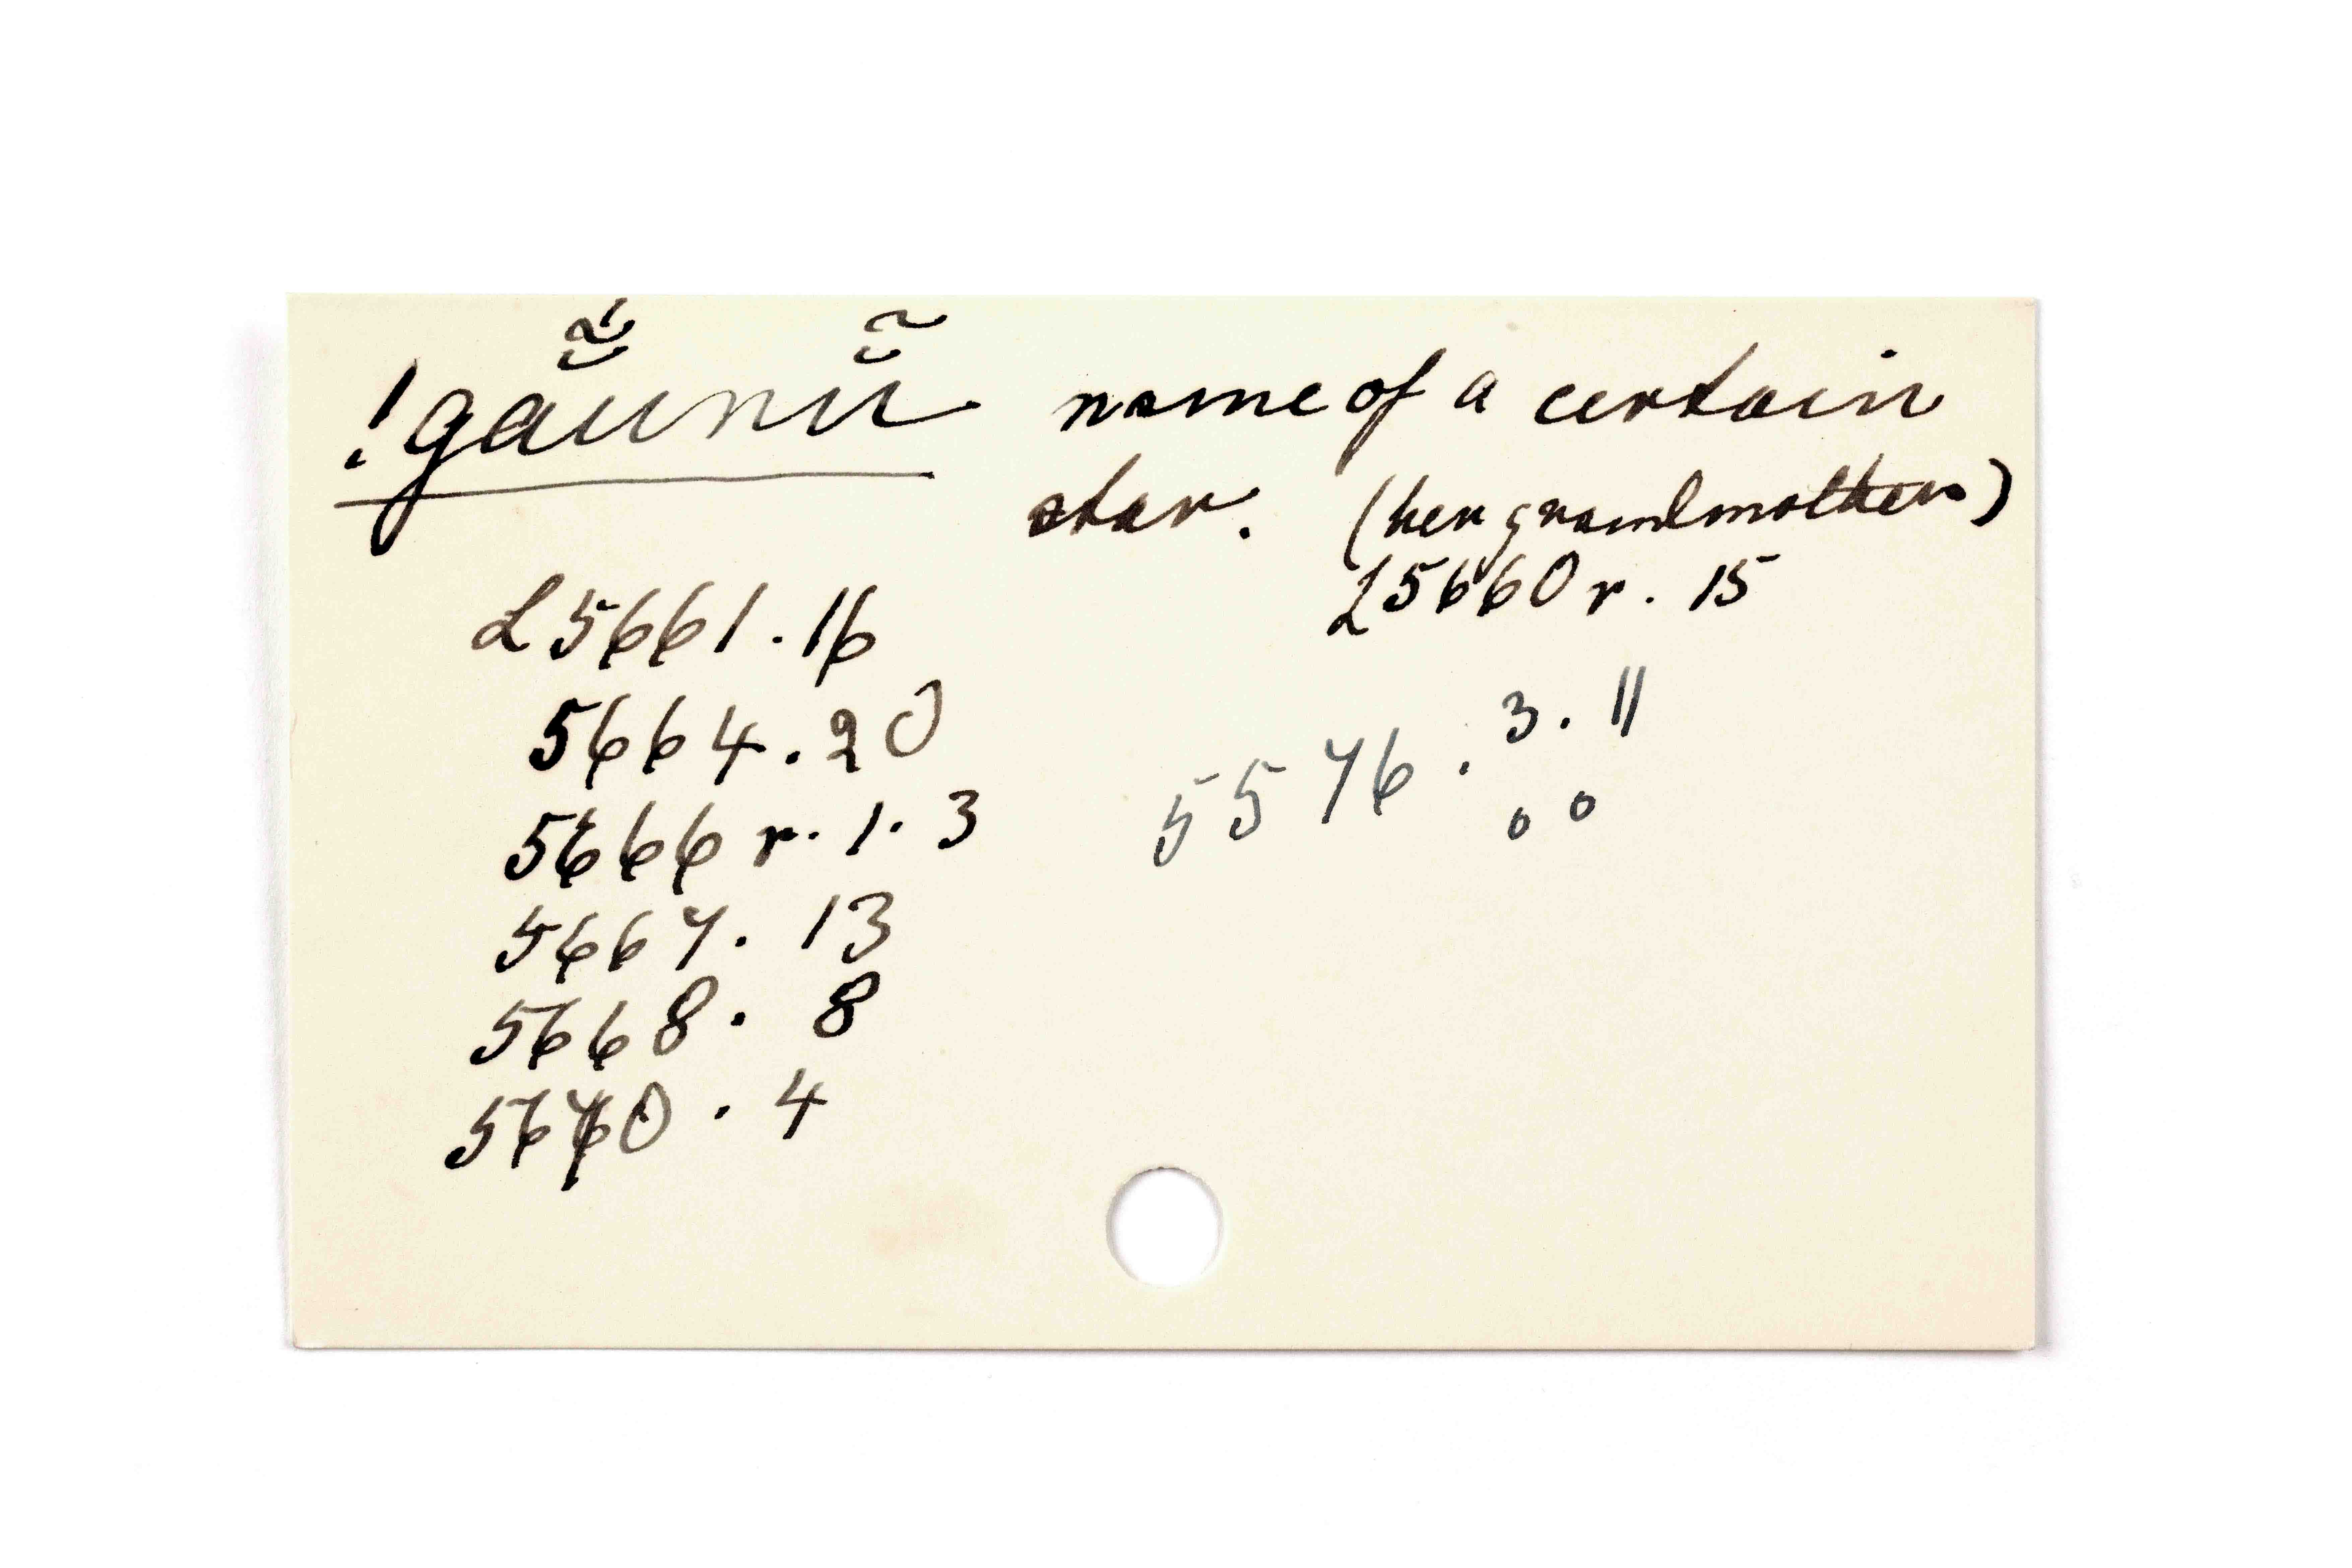 !gãunũ name of a certain
star. (her grandmother)
L5660 r. 15
L5661.16
5664.20
5666 r. 1. 3
5667. 13
5668. 8
5670. 4
5576. 3. 11